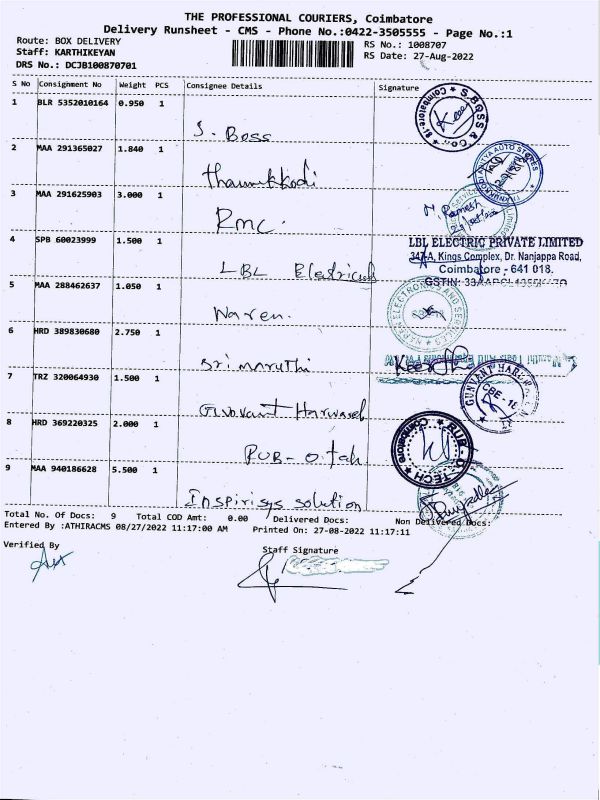 THE PROFESSIONAL COURIERS, Coimbatore
Delivery Runsheet - CMS - Phone No.:0422-3505555 - Page No.:1
Route: BOX DELIVERY
RS No.: 1008707
Staff: KARTHIKEYAN
RS Date: 27-Aug-2022
DRS No.: DCJB100870701
S No Consignment No Weight PCS Consignee Details Signature
1 BLR 5352010164 0.950 1
S. Boss
S.BOSS & Co. Coimbatore-18
2 MAA 291365027 1.840 1
Thanukkodi
3 MAA 291625903 3.000 1
RMC.
Ramesh
4 SPB 60023999 1.500 1
LBL Electrical
LBL ELECTRIC PRIVATE LIMITED
347-A, Kings Complex, Dr. Nanjappa Road,
Coimbatore - 641 018.
5 MAA 288462637 1.050 1
Naren.
6 HRD 389830680 2.750 1
Sri maruthi
7 TRZ 320064930 1.500 1
Gunvant
CBE - 18
8 HRD 369220325 2.000 1
RUB-O-tech
RUB-O-TECH Coimbatore
9 MAA 940186628 5.500 1
Inspirisys solution
Total No. Of Docs: 9 Total COD Amt: 0.00 Delivered Docs: Non Delivered Docs:
Entered By :ATHIRACMS 08/27/2022 11:17:00 AM Printed On: 27-08-2022 11:17:11
Verified By
Staff Signature